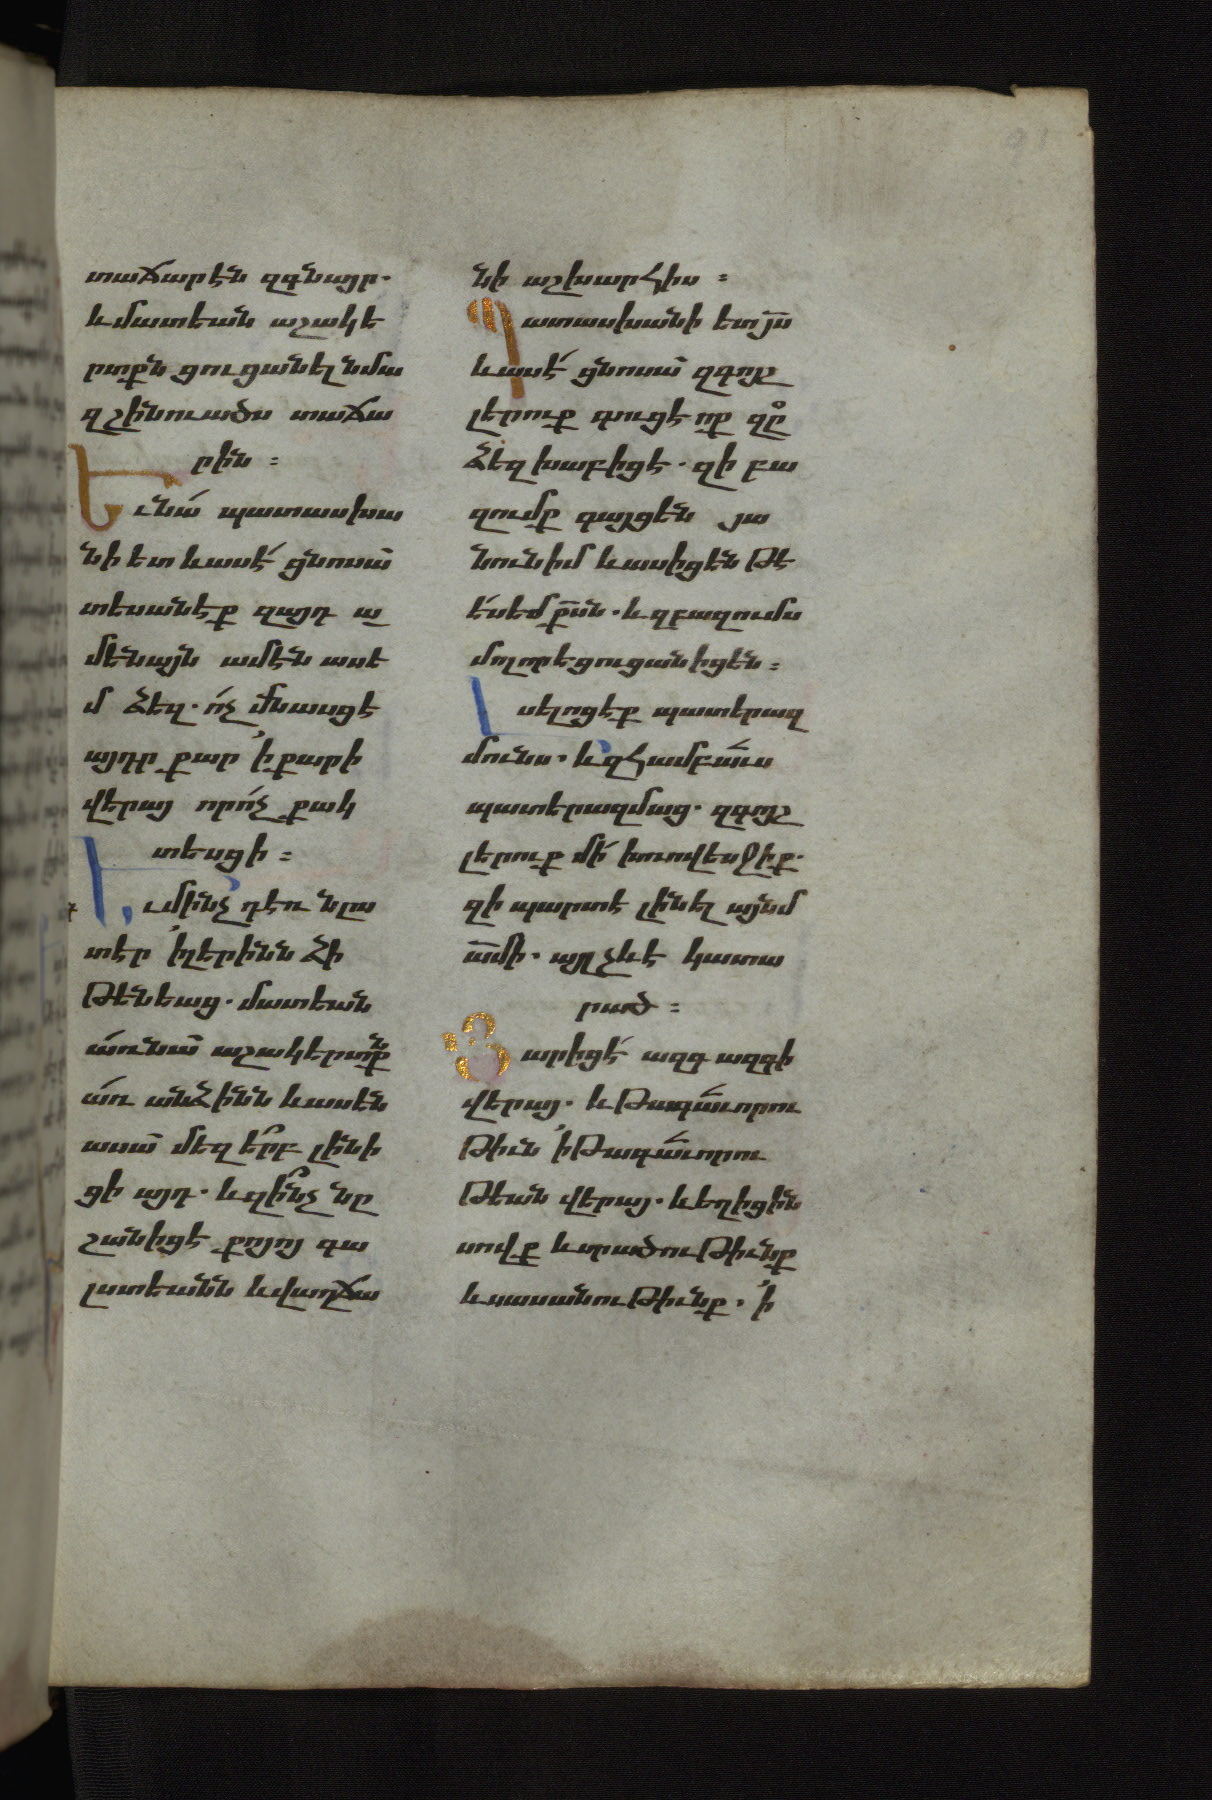 տաճարէն զգնայր.
և մատեան աշակե
րտքն ցուցանել նմա
զշինուածս տաճա
րին :
Եւ նա՛ պատասխա
նի ետ և ասէ՛ ցնոսա̄
տեսանէք զայդ ա
մենայն ամէն ասե
մ ձեզ. ո՛չ մնասցէ
այդր քար ՚ի քարի
վերայ որ ո՛չ քակ
տեսցի :
Եւ մինչ դեռ նստ
տէր ՚ի լերինն ձի
թենեաց. մատեան
ա՛ռ նա̄ աշակերտքն
ա՛ռ անձինն և ասեն
ասա̄ մեզ ե՞րբ լինի
ցի այդ. և զի՞նչ նը
շանիցէ քոյոյ գա
լստեանն և վաղճա
նի աշխարհիս :
Պատասխանի ետ յ̄ս
և ասէ՛ ցնոսա̄ զգոյշ
լերուք գուցէ ոք զը
ձեզ խաբիցէ. զի բա
զումք գայցեն յա
նուն իմ և ասիցեն թէ
ե՛ս եմ ք̄սն. և զբազումս
մոլորեցուցանիցեն :
Լսելոցէք պատերազ
մունս. և զհամբա̄ւս
պատերազմաց. զգոյշ
լերուք մի՛ խռովեսջիք.
զի պարտ է լինել այնմ
ա̄մի. այլ չև է կատա
րած :
Յարիցէ՛ ազգ ազգի
վերայ. և թագա̄ւորու
թիւն ՚ի թագա̄ւորու
թեան վերայ. և եղիցին
սովք և սրածութիւնք
և սասանութիւնք. ՚ի